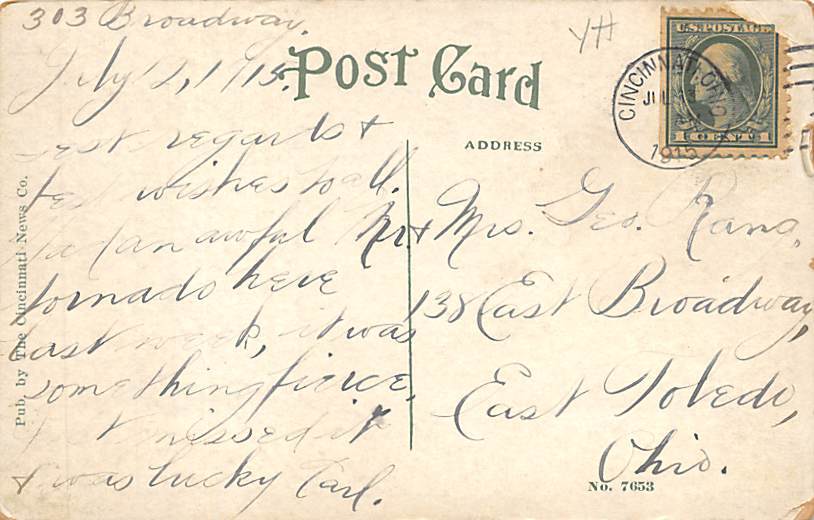 303 Broadway.
July 12, 1915.
Best regards &
best wishes to all.
Had an awful
tornado here
last week, it was
something fierce.
Just missed it
& was lucky Carl.
Post Card
ADDRESS
YH
U.S. POSTAGE
1 CENT 1
CINCINNATI, OHIO
JUL
1915
Mr & Mrs. Geo. Rang,
138 East Broadway,
East Toledo,
Ohio.
No. 7653
Pub. by The Cincinnati News Co.